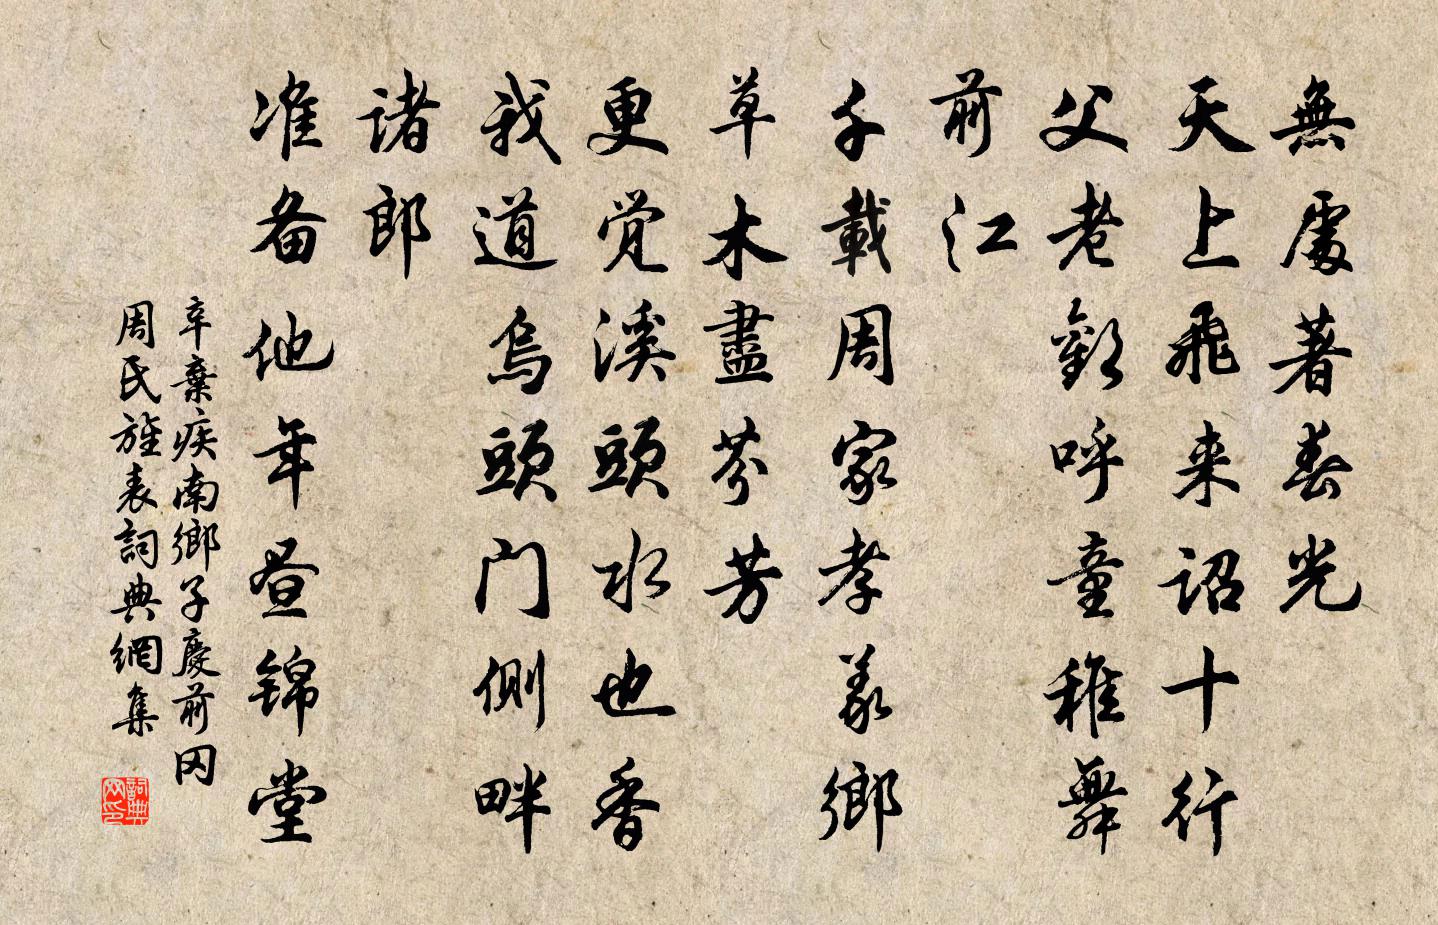 無處著春光
天上飛来詔十行
父老歡呼童稚舞
前江
千載周家孝義鄉
草木盡芬芳
更觉溪頭水也香
我道烏頭门侧畔
诸郎
准备他年昼锦堂
辛棄疾南鄉子慶前冈
周氏旌表詞典網集
詞典网印